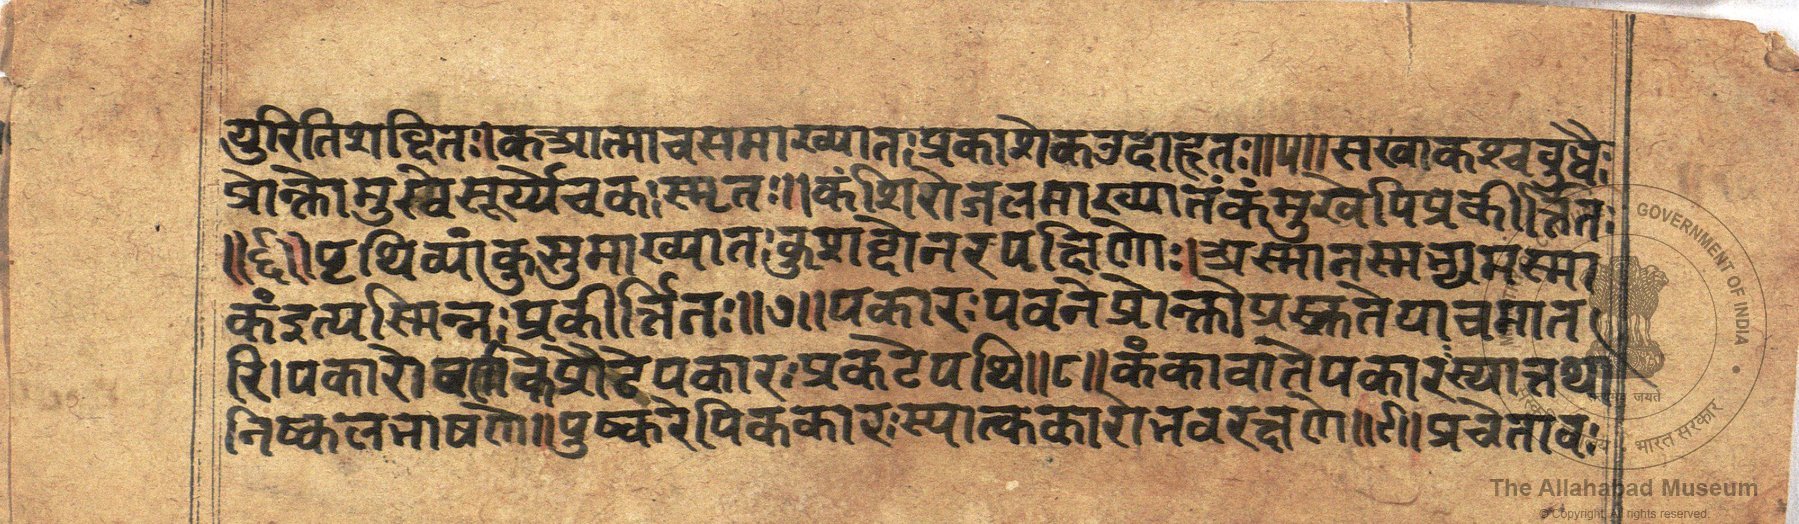 युरितिशब्दितः।कआत्माचसमाख्यातःप्रकाशेकउदाहृतः॥५॥सखाकश्चवुधैः
प्रोक्तोमुख्येसूर्य्येचकःस्मृतः॥कंशिरोजलमाख्यातंकंमुखेपिप्रकीर्त्तितः
॥६॥पृथिव्यांकुसुमाख्यातःकुशब्दो
कंइत्यस्मिन्नःप्रकीर्त्तितः॥७॥पकारःपवनेप्रोक्तो
रि।पकारो प्रौढेपकारःप्रकटेपथि॥८॥कंकावातेपकारंस्यात्तथा
निष्कलभाषणे॥पुष्करेपिककारःस्यात्ककारो॥९॥प्रचेतावः
GOVERNMENT OF INDIA
सत्यमेव जयते
भारत सरकार
The Allahabad Museum
© Copyright, All rights reserved.